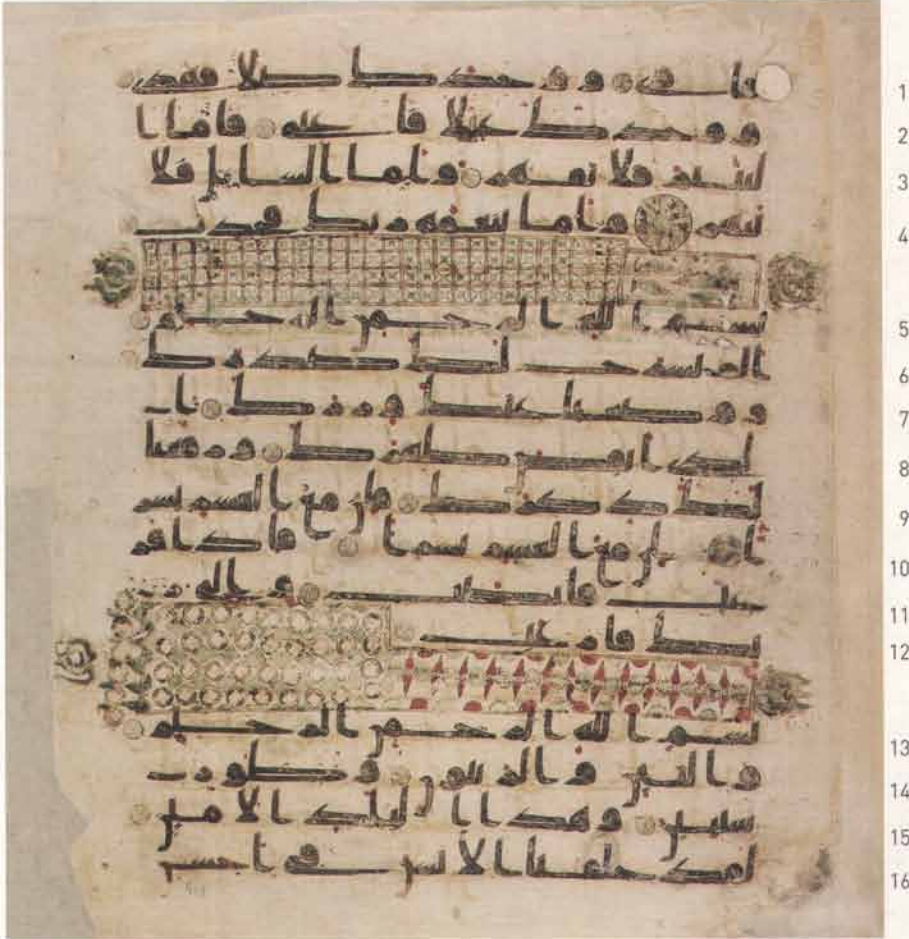 فاوى ووجدك ضلا فهدى 1
ووجدك عئلا فاغنى فاما ا 2
ليتيم فلا تقهر واما السايل فلا 3
تنهر واما بنعمة ربك فحدث 4
بسم الله الرحمن الرحيم 5
الم نشرح لك صدرك 6
ووضعنا عنك وزرك ا 7
لذى انقض ظهرك ورفعنا 8
لك ذكرك فان مع العسر يسر 9
ا ان مع العسر يسرا فاذا فر 10
غت فانصب والى ر 11
بك فارغب 12
بسم الله الرحمن الرحيم 13
والتين والزيتون وطور 14
سينين وهذا البلد الامين 15
لقد خلقنا الانسن فى احسن 16